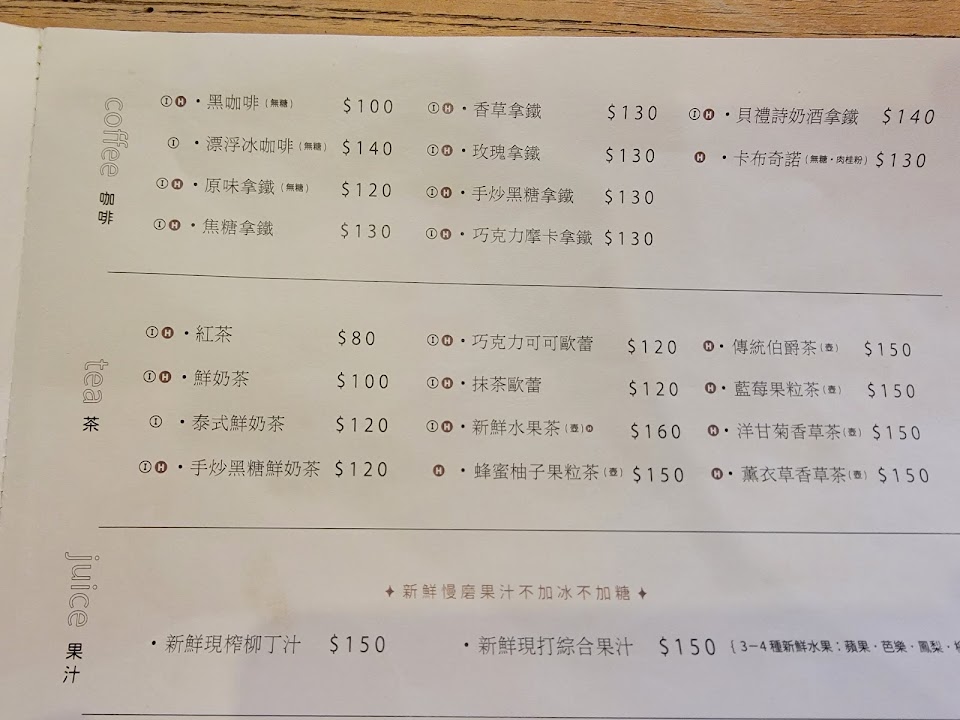 coffee 咖啡
Ⓘ Ⓗ・黑咖啡(無糖) $100
Ⓘ・漂浮冰咖啡(無糖) $140
Ⓘ Ⓗ・原味拿鐵(無糖) $120
Ⓘ Ⓗ・焦糖拿鐵 $130
Ⓘ Ⓗ・香草拿鐵 $130
Ⓘ Ⓗ・玫瑰拿鐵 $130
Ⓘ Ⓗ・手炒黑糖拿鐵 $130
Ⓘ Ⓗ・巧克力摩卡拿鐵 $130
Ⓘ Ⓗ・貝禮詩奶酒拿鐵 $140
Ⓗ・卡布奇諾(無糖・肉桂粉) $130
tea 茶
Ⓘ Ⓗ・紅茶 $80
Ⓘ Ⓗ・鮮奶茶 $100
Ⓘ・泰式鮮奶茶 $120
Ⓘ Ⓗ・手炒黑糖鮮奶茶 $120
Ⓘ Ⓗ・巧克力可可歐蕾 $120
Ⓘ Ⓗ・抹茶歐蕾 $120
Ⓘ Ⓗ・新鮮水果茶(壺)Ⓗ $160
Ⓗ・蜂蜜柚子果粒茶(壺) $150
Ⓗ・傳統伯爵茶(壺) $150
Ⓗ・藍莓果粒茶(壺) $150
Ⓗ・洋甘菊香草茶(壺) $150
Ⓗ・薰衣草香草茶(壺) $150
juice 果汁
✦新鮮慢磨果汁不加冰不加糖✦
・新鮮現榨柳丁汁 $150
・新鮮現打綜合果汁 $150 {3-4種新鮮水果:蘋果・芭樂・鳳梨・